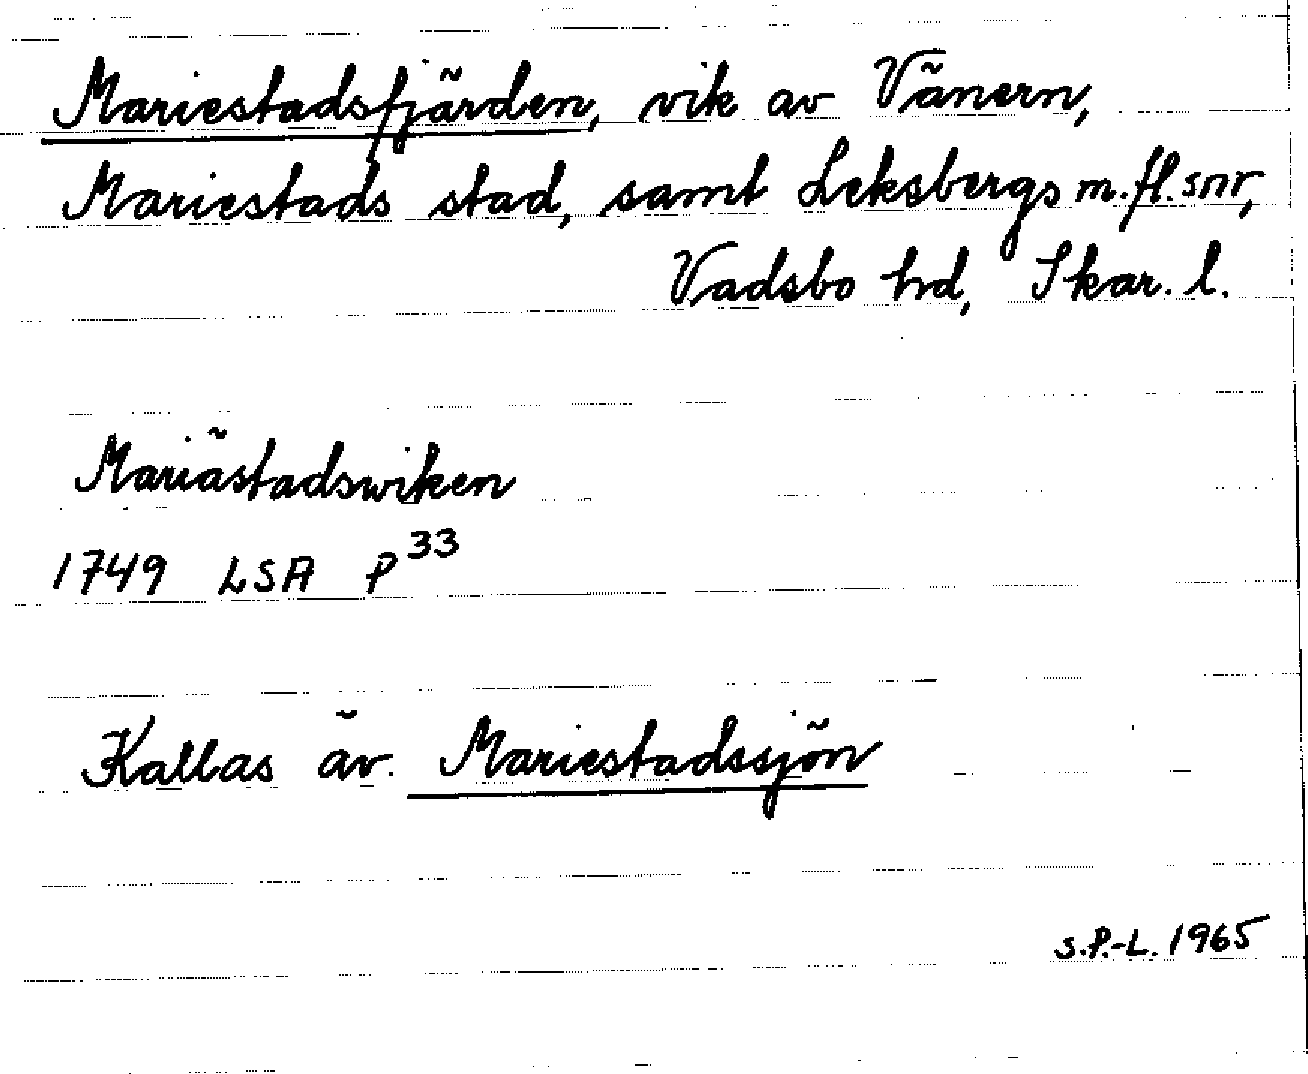 Mariestadsfjärden, vik av Vänern,
Mariestads stad, samt Leksbergs m.fl. snr,
Vadsbo hd, Skar. l.
Mariästadswiken
1749 LSA P33
Kallas äv. Mariestadssjön
S.P.-L. 1965